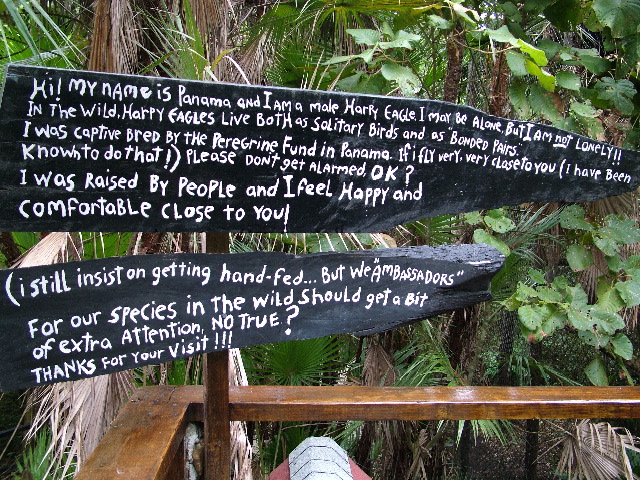 Hi! MY NAME is Panama and I AM a male Harpy Eagle. I may be Alone, But I AM not LONELY!!
In The Wild, Harpy EAGLES Live Both as Solitary Birds and as "BONDED PAIRS."
I was captive Bred by the Peregrine Fund in Panama. If i fly very, very close to you (i have Been
Known to do that!) Please Don't get Alarmed, OK?
I was Raised By People and I feel Happy and
comfortable close to you!
(i still insist on getting hand-fed... But We "AMBASSADORS"
For our species in the wild should get a Bit
of extra Attention, NO TRUE?
THANKS For Your Visit!!!